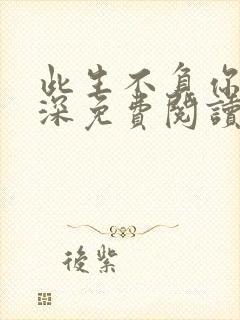 此生不負你
深免費閱讀
後紫